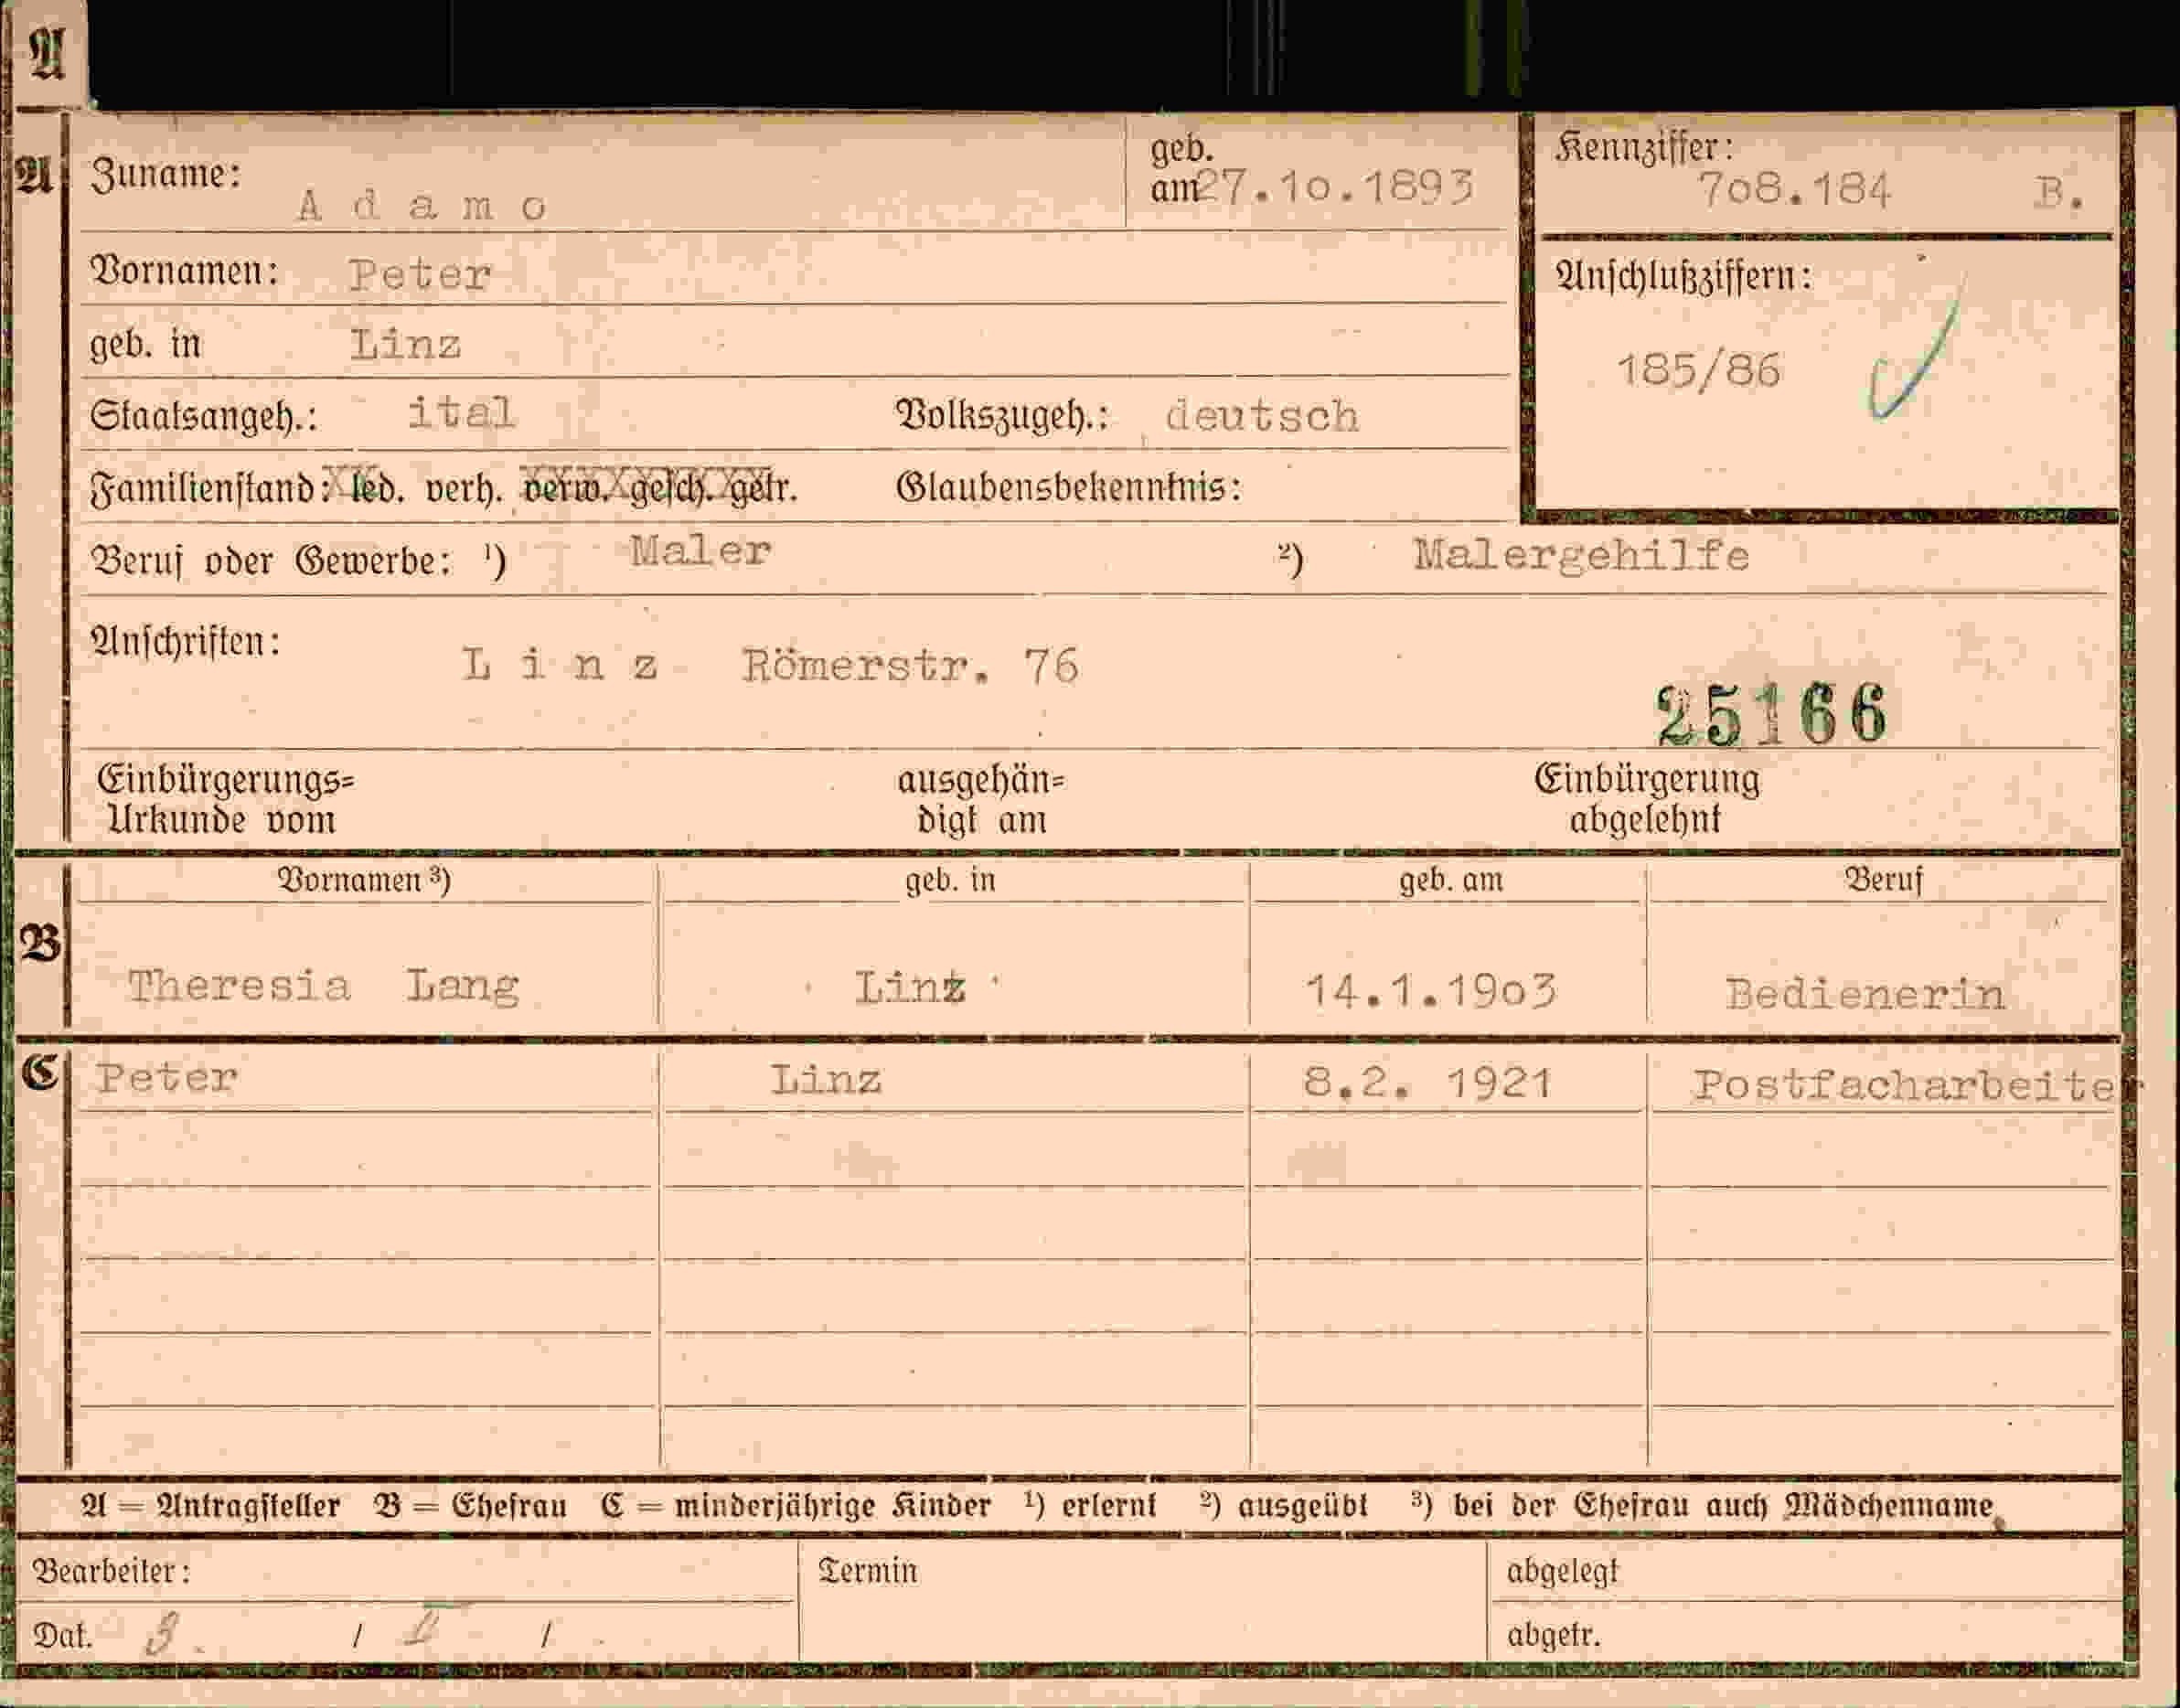 A
A Zuname: Adamo geb. am 27.1o.1893 Kennziffer: 7o8.184 B.
Vornamen: Peter Anschlußziffern:
geb. in Linz 185/86
Staatsangeh.: ital Volkszugeh.: deutsch
Familienstand: led. verh. verw. gesch. getr. Glaubensbekenntnis:
Beruf oder Gewerbe: ¹) Maler ²) Malergehilfe
Anschriften: Linz Römerstr. 76
25166
Einbürgerungs= ausgehän= Einbürgerung
Urkunde vom digt am abgelehnt
Vornamen ³) geb. in geb. am Beruf
B Theresia Lang Linz 14.1.19o3 Bedienerin
C Peter Linz 8.2. 1921 Postfacharbeiter
A = Antragsteller B = Ehefrau C = minderjährige Kinder ¹) erlernt ²) ausgeübt ³) bei der Ehefrau auch Mädchenname.
Bearbeiter: Termin abgelegt
Dat. 3. / / abgetr.